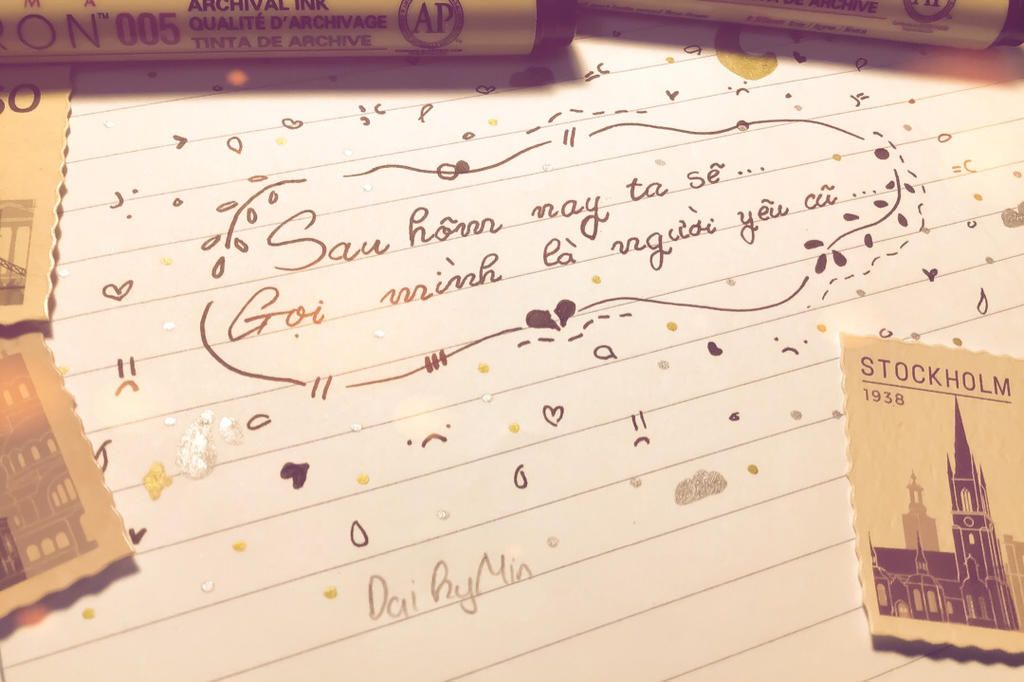 ARCHIVAL INK
RON™ 005 QUALITÉ D'ARCHIVAGE
TINTA DE ARCHIVE
AP
TINTA DE ARCHIVE
SO
Sau hôm nay ta sẽ...
Gọi mình là người yêu cũ...
=C
;C
;=
=C
STOCKHOLM
1938
Dai Ky Min